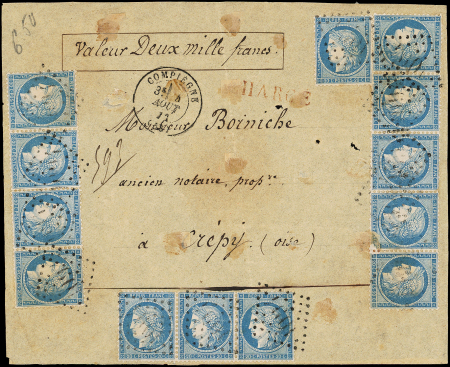 6 50
Valeur Deux mille francs.
COMPIEGNE
AOUT
CHARGÉ
Monsieur Boiniche
593
ancien notaire, propre
à Crépy. (oise)